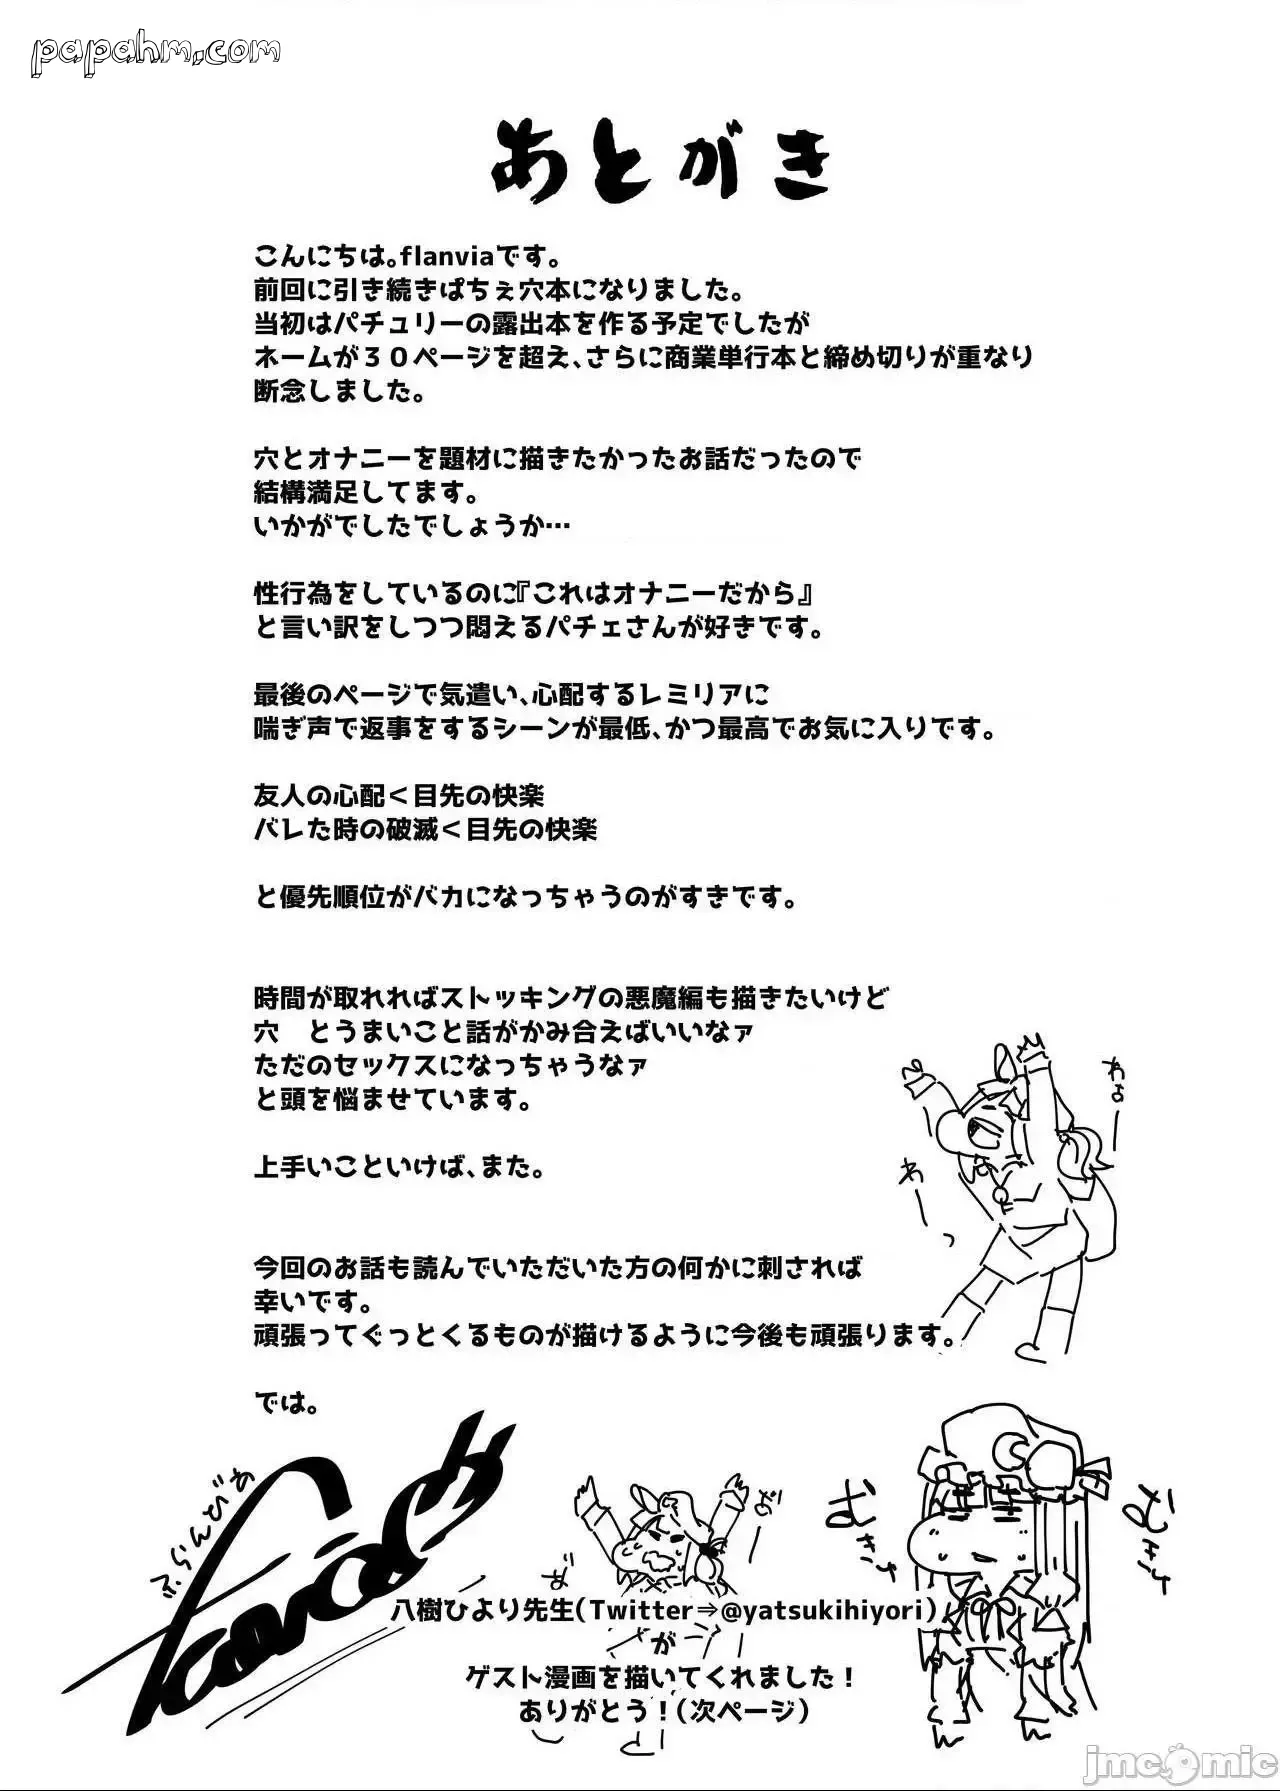 papahm.com
あとがき
こんにちは。flanviaです。
前回に引き続きぱちぇ穴本になりました。
当初はパチュリーの露出本を作る予定でしたが
ネームが３０ページを超え、さらに商業単行本と締め切りが重なり
断念しました。
穴とオナニーを題材に描きたかったお話だったので
結構満足してます。
いかがでしたでしょうか…
性行為をしているのに『これはオナニーだから』
と言い訳をしつつ悶えるパチェさんが好きです。
最後のページで気遣い、心配するレミリアに
喘ぎ声で返事をするシーンが最低、かつ最高でお気に入りです。
友人の心配＜目先の快楽
バレた時の破滅＜目先の快楽
と優先順位がバカになっちゃうのがすきです。
時間が取れればストッキングの悪魔編も描きたいけど
穴　とうまいこと話がかみ合えばいいなァ
ただのセックスになっちゃうなァ
と頭を悩ませています。
上手いこといけば、また。
わよー
わーっ
今回のお話も読んでいただいた方の何かに刺されば
幸いです。
頑張ってぐっとくるものが描けるように今後も頑張ります。
では。
ふらんどびあ
むきゅ
むきゅ
八樹ひより先生（Twitter⇒@yatsukihiyori）
が
ゲスト漫画を描いてくれました！
ありがとう！（次ページ）
jmcomic